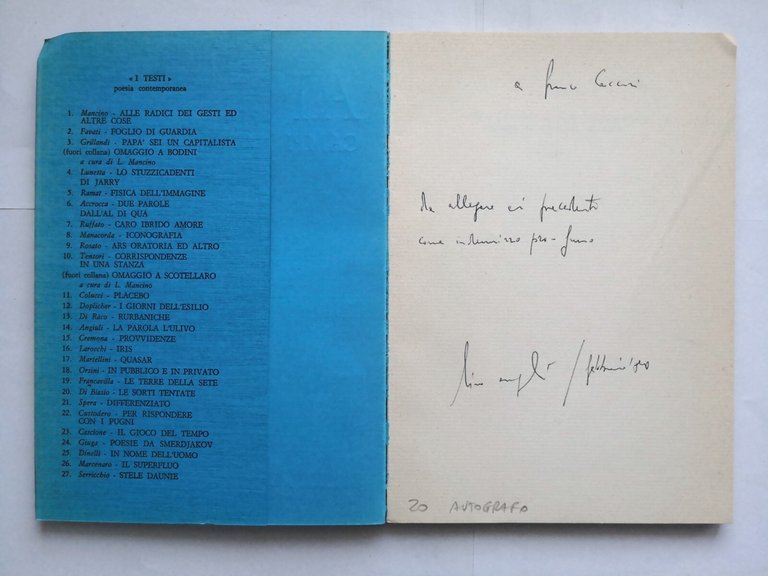 « I TESTI »
poesia contemporanea
1. Mancino - ALLE RADICI DEI GESTI ED
ALTRE COSE
2. Favati - FOGLIO DI GUARDIA
3. Grillandi - PAPA' SEI UN CAPITALISTA
(fuori collana) OMAGGIO A BODINI
a cura di L. Mancino
4. Lunetta - LO STUZZICADENTI
DI JARRY
5. Ramat - FISICA DELL'IMMAGINE
6. Accrocca - DUE PAROLE
DALL'AL DI QUA
7. Ruffato - CARO IBRIDO AMORE
8. Manacorda - ICONOGRAFIA
9. Rosato - ARS ORATORIA ED ALTRO
10. Tentori - CORRISPONDENZE
IN UNA STANZA
(fuori collana) OMAGGIO A SCOTELLARO
a cura di L. Mancino
11. Colucci - PLACEBO
12. Doplicher - I GIORNI DELL'ESILIO
13. Di Raco - RURBANICHE
14. Angiuli - LA PAROLA L'ULIVO
15. Cremona - PROVVIDENZE
16. Larocchi - IRIS
17. Martellini - QUASAR
18. Orsini - IN PUBBLICO E IN PRIVATO
19. Francavilla - LE TERRE DELLA SETE
20. Di Biasio - LE SORTI TENTATE
21. Spera - DIFFERENZIATO
22. Custodero - PER RISPONDERE
CON I PUGNI
23. Cascione - IL GIOCO DEL TEMPO
24. Giuga - POESIE DA SMERDJAKOV
25. Dinelli - IN NOME DELL'UOMO
26. Marcenaro - IL SUPERFLUO
27. Serricchio - STELE DAUNIE
a franco
da allegare ai precedenti
come
lino angiuli / febbraio
20 AUTOGRAFO